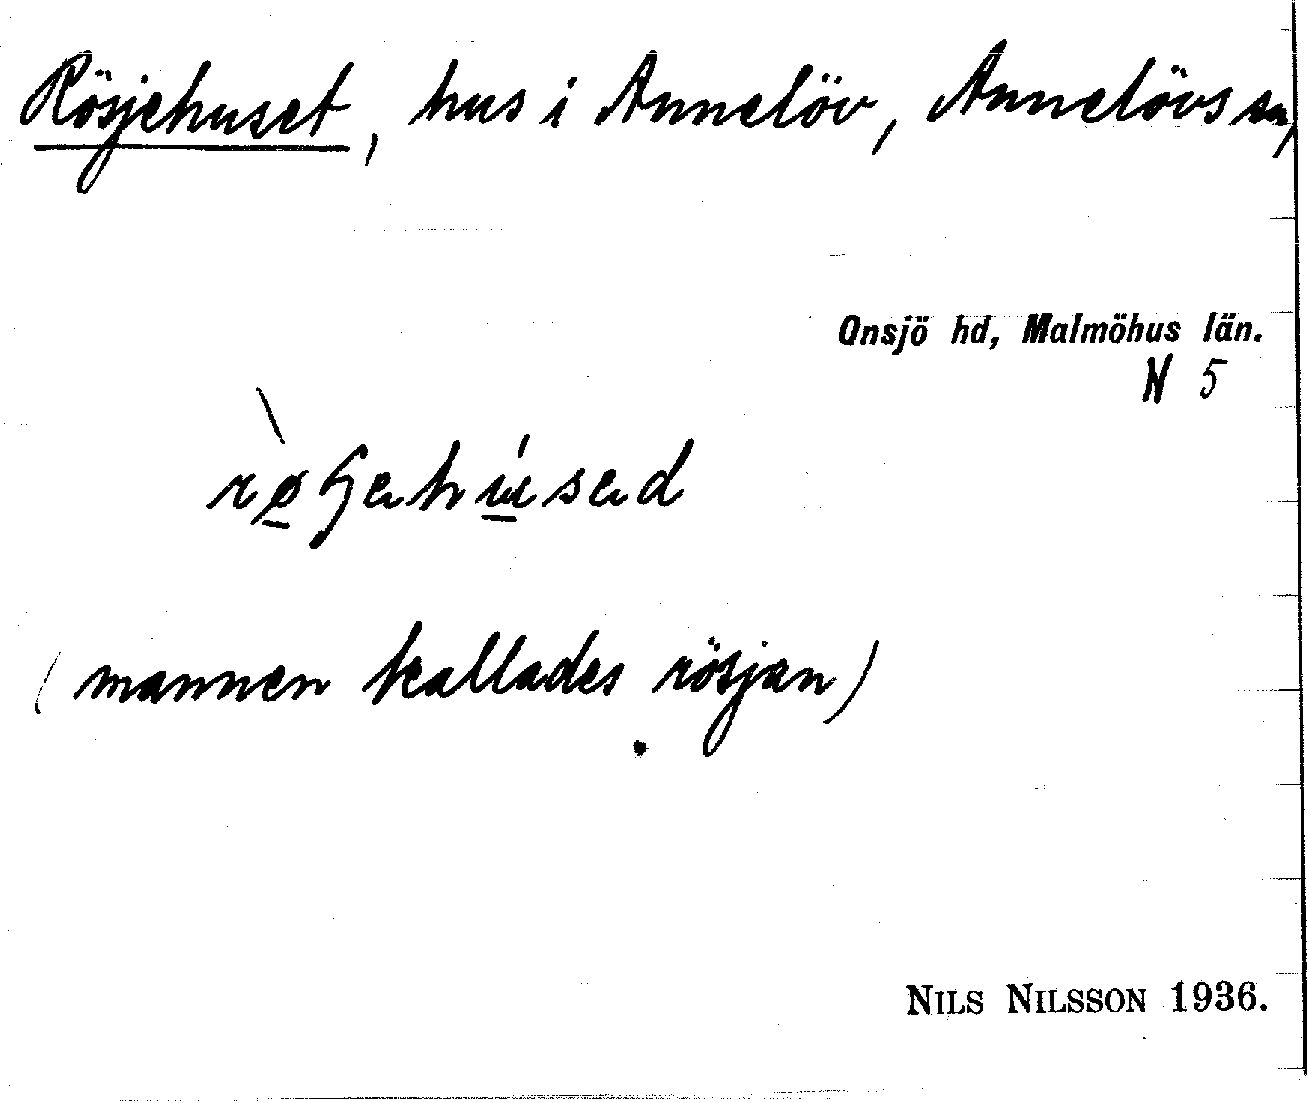 Rösjehuset, hus i Annelöv, Annelövs sn,
Onsjö hd, Malmöhus län.
N 5
(mannen kallades rösjan)
NILS NILSSON 1936.